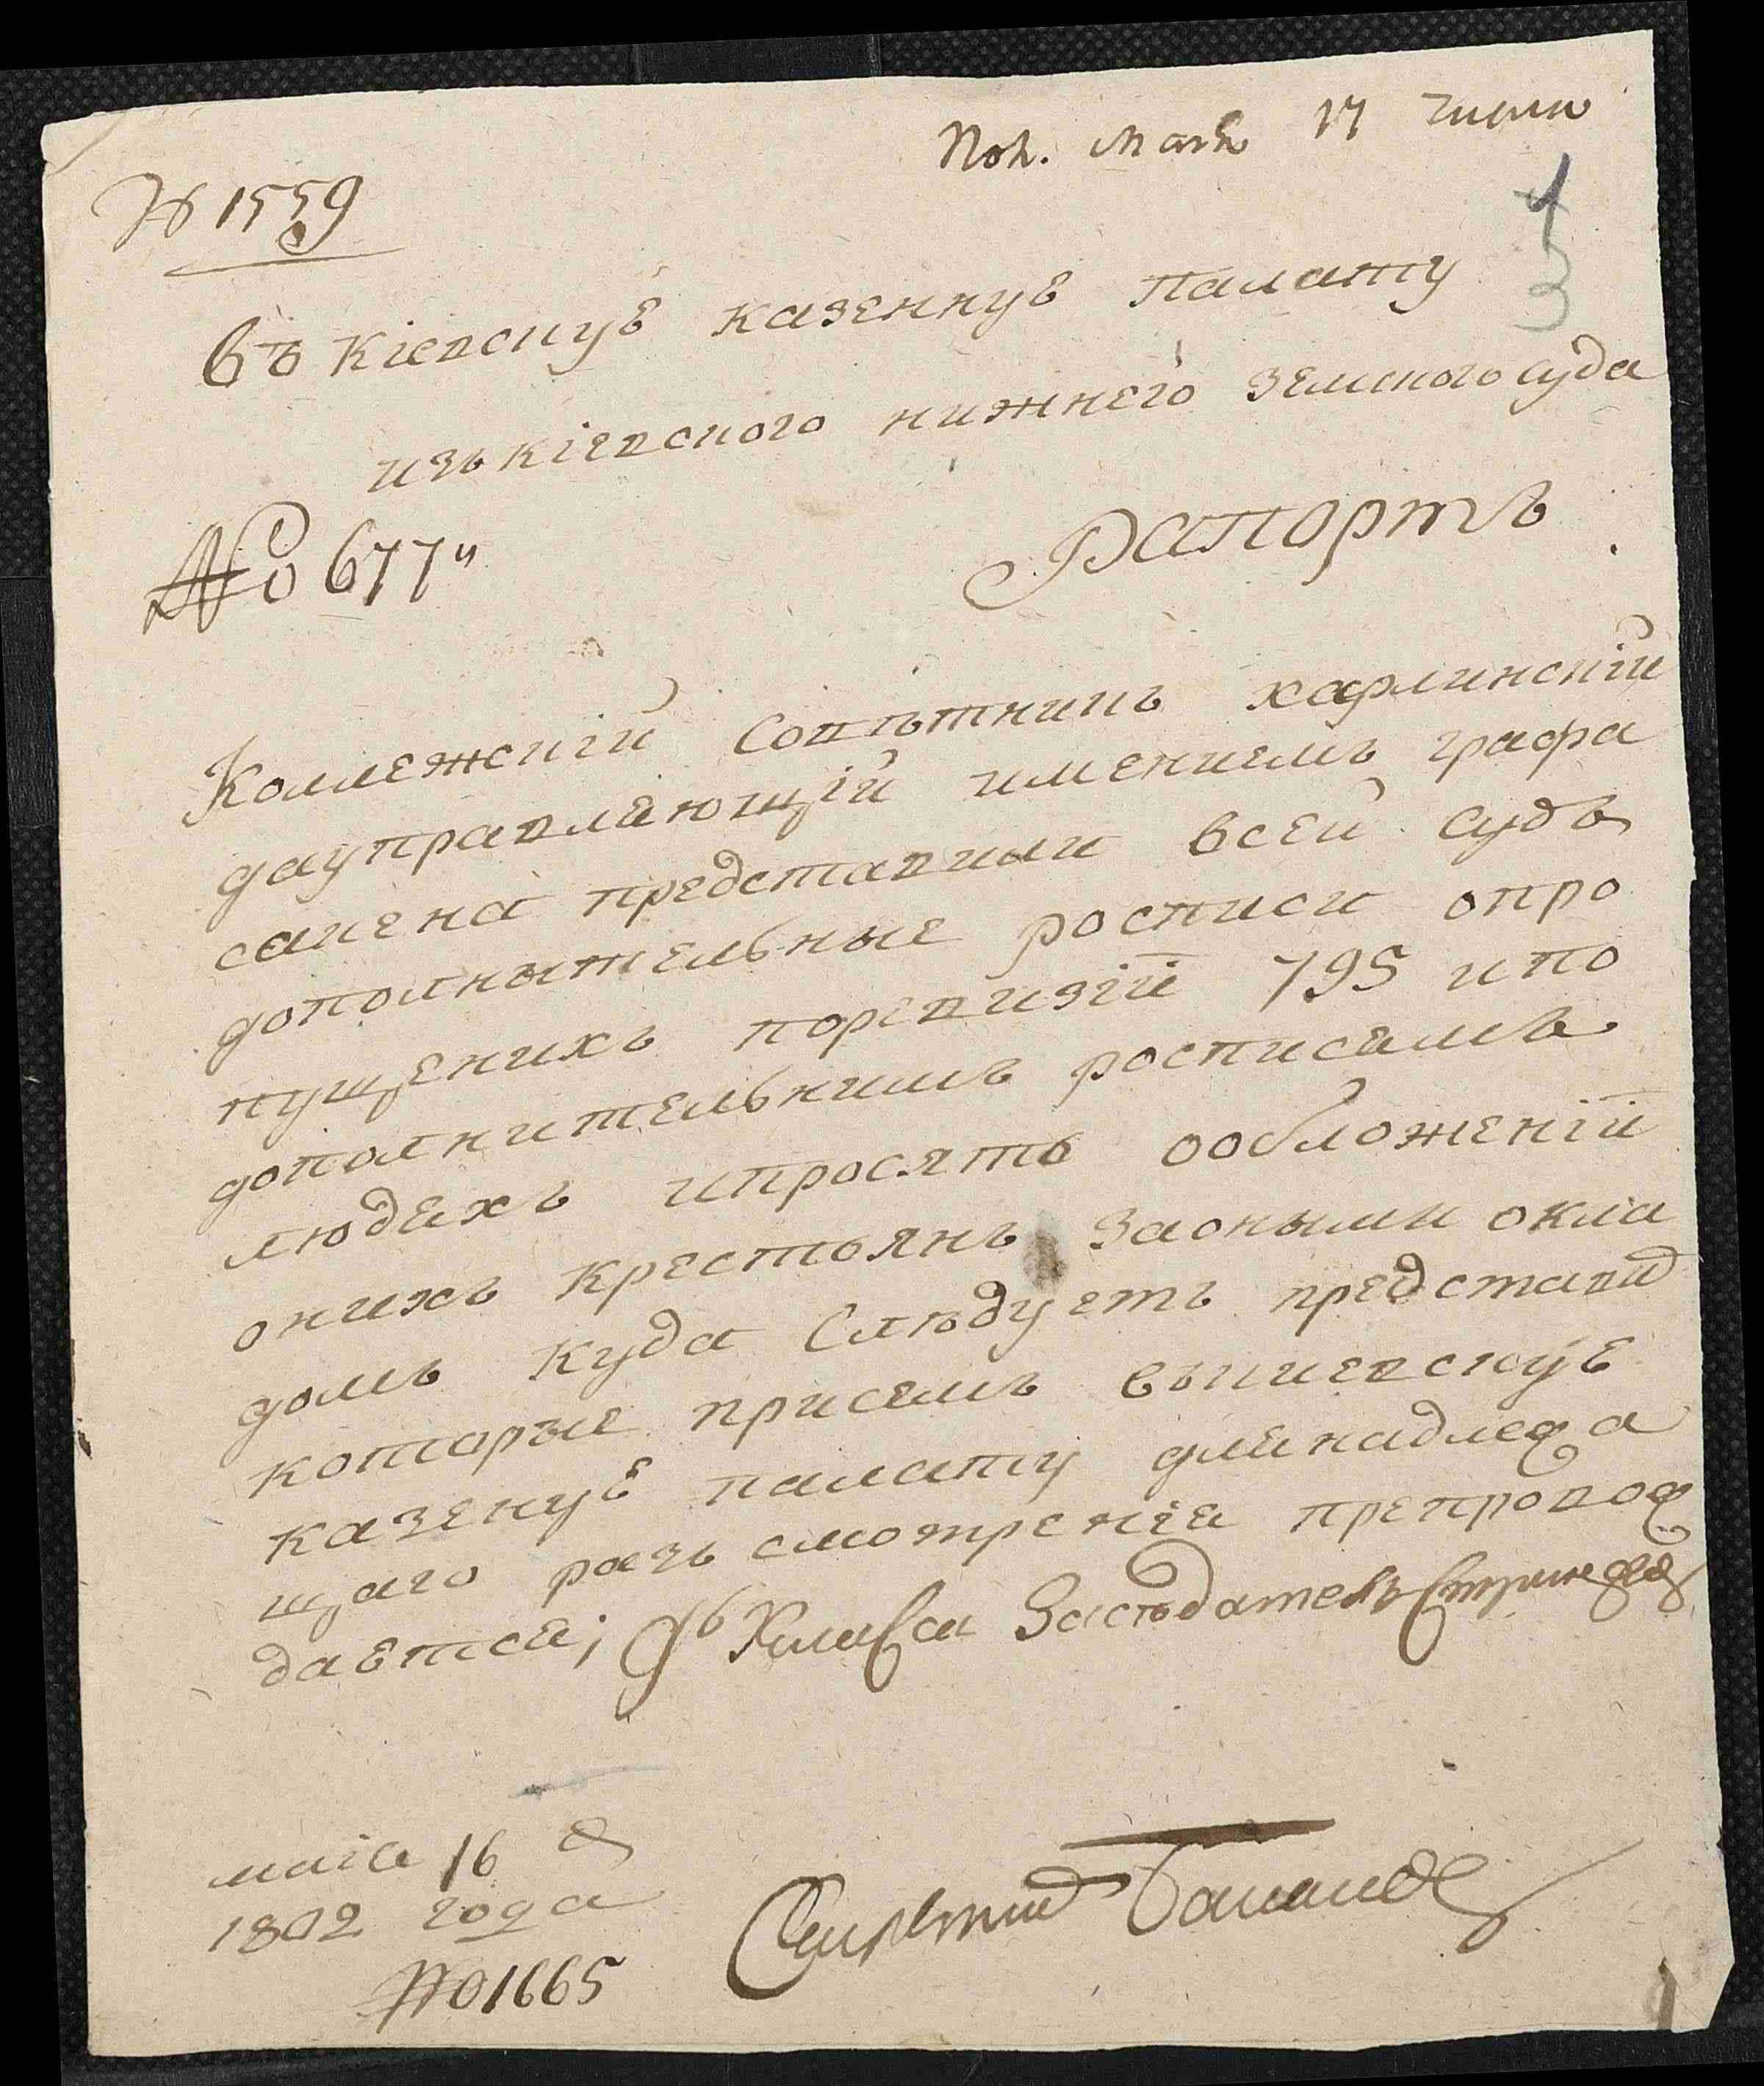 Пол. Маія 17 числа
№ 1559
Въ Кіевскую казенную палату
изъ кіевского нижнего земского суда
№ 677
Рапортъ
Коллежскій Советникъ харлинскій
да управляющій имениемъ графа
представили всей судъ
дополнытельные росписи опро
пущенихъ поревизіи 795 ипо
дополнительнимъ росписамъ
людехъ ипросятъ ообложеніи
онихъ крестьянъ заоными окла
домъ куда Слѣдуетъ представил
которые присемъ въкиевскую
казеную палату дляналдежа
щаго разъсмотренія препровож
дается; Засѣдатель
маія 16 д
1802 года
№ 1665
Секретарь